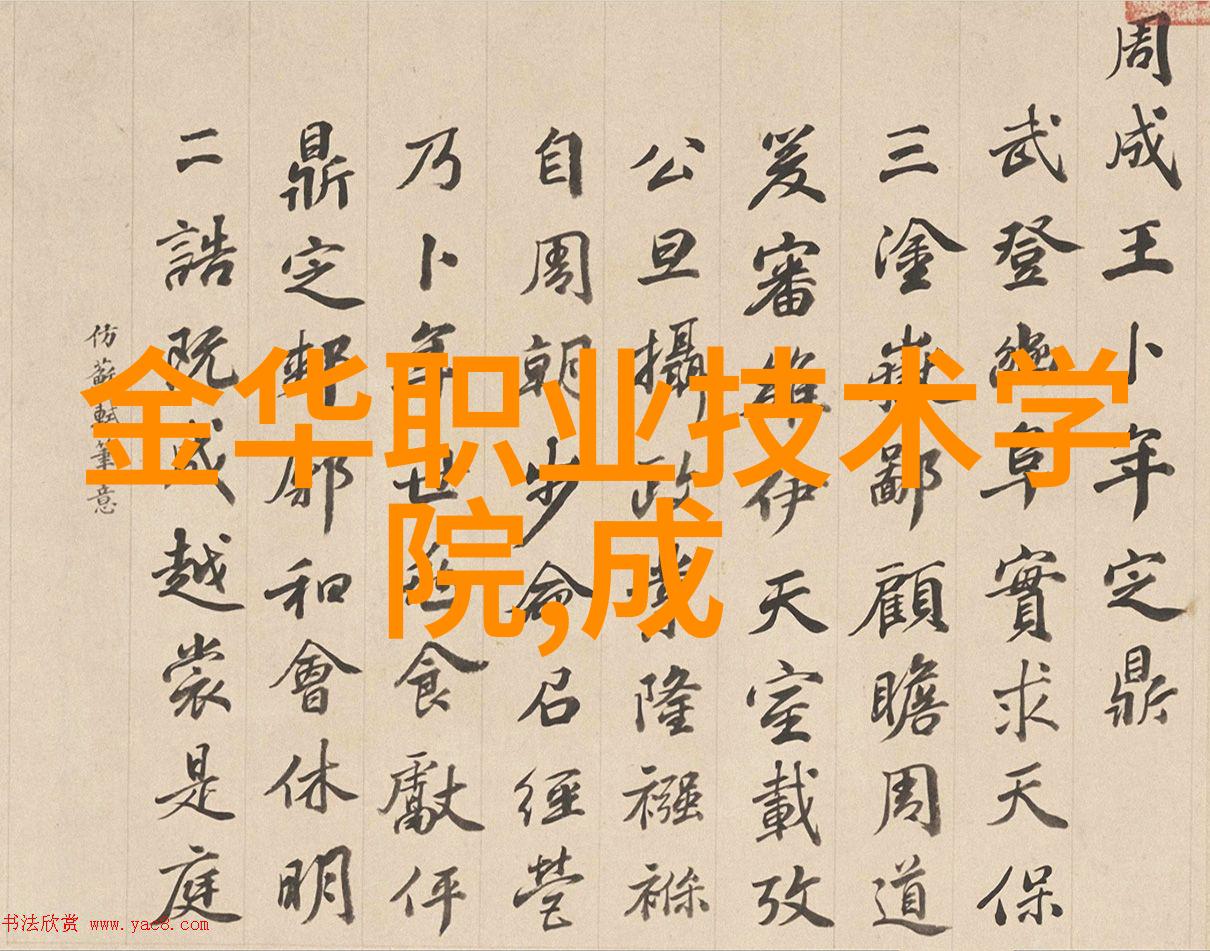 周成王卜年定鼎
武登幾阜實求天保
三塗嶽鄙顧瞻周道
爰審雒伊天室載攷
公旦攝政業隆襁褓
自周朝步命召經營
乃卜年世食獻伻
鼎定郟鄏和會休明
二誥既成越裳是庭
仿蘇軾筆意
金华职业技术学
院,成
书法欣赏 www.yac8.com